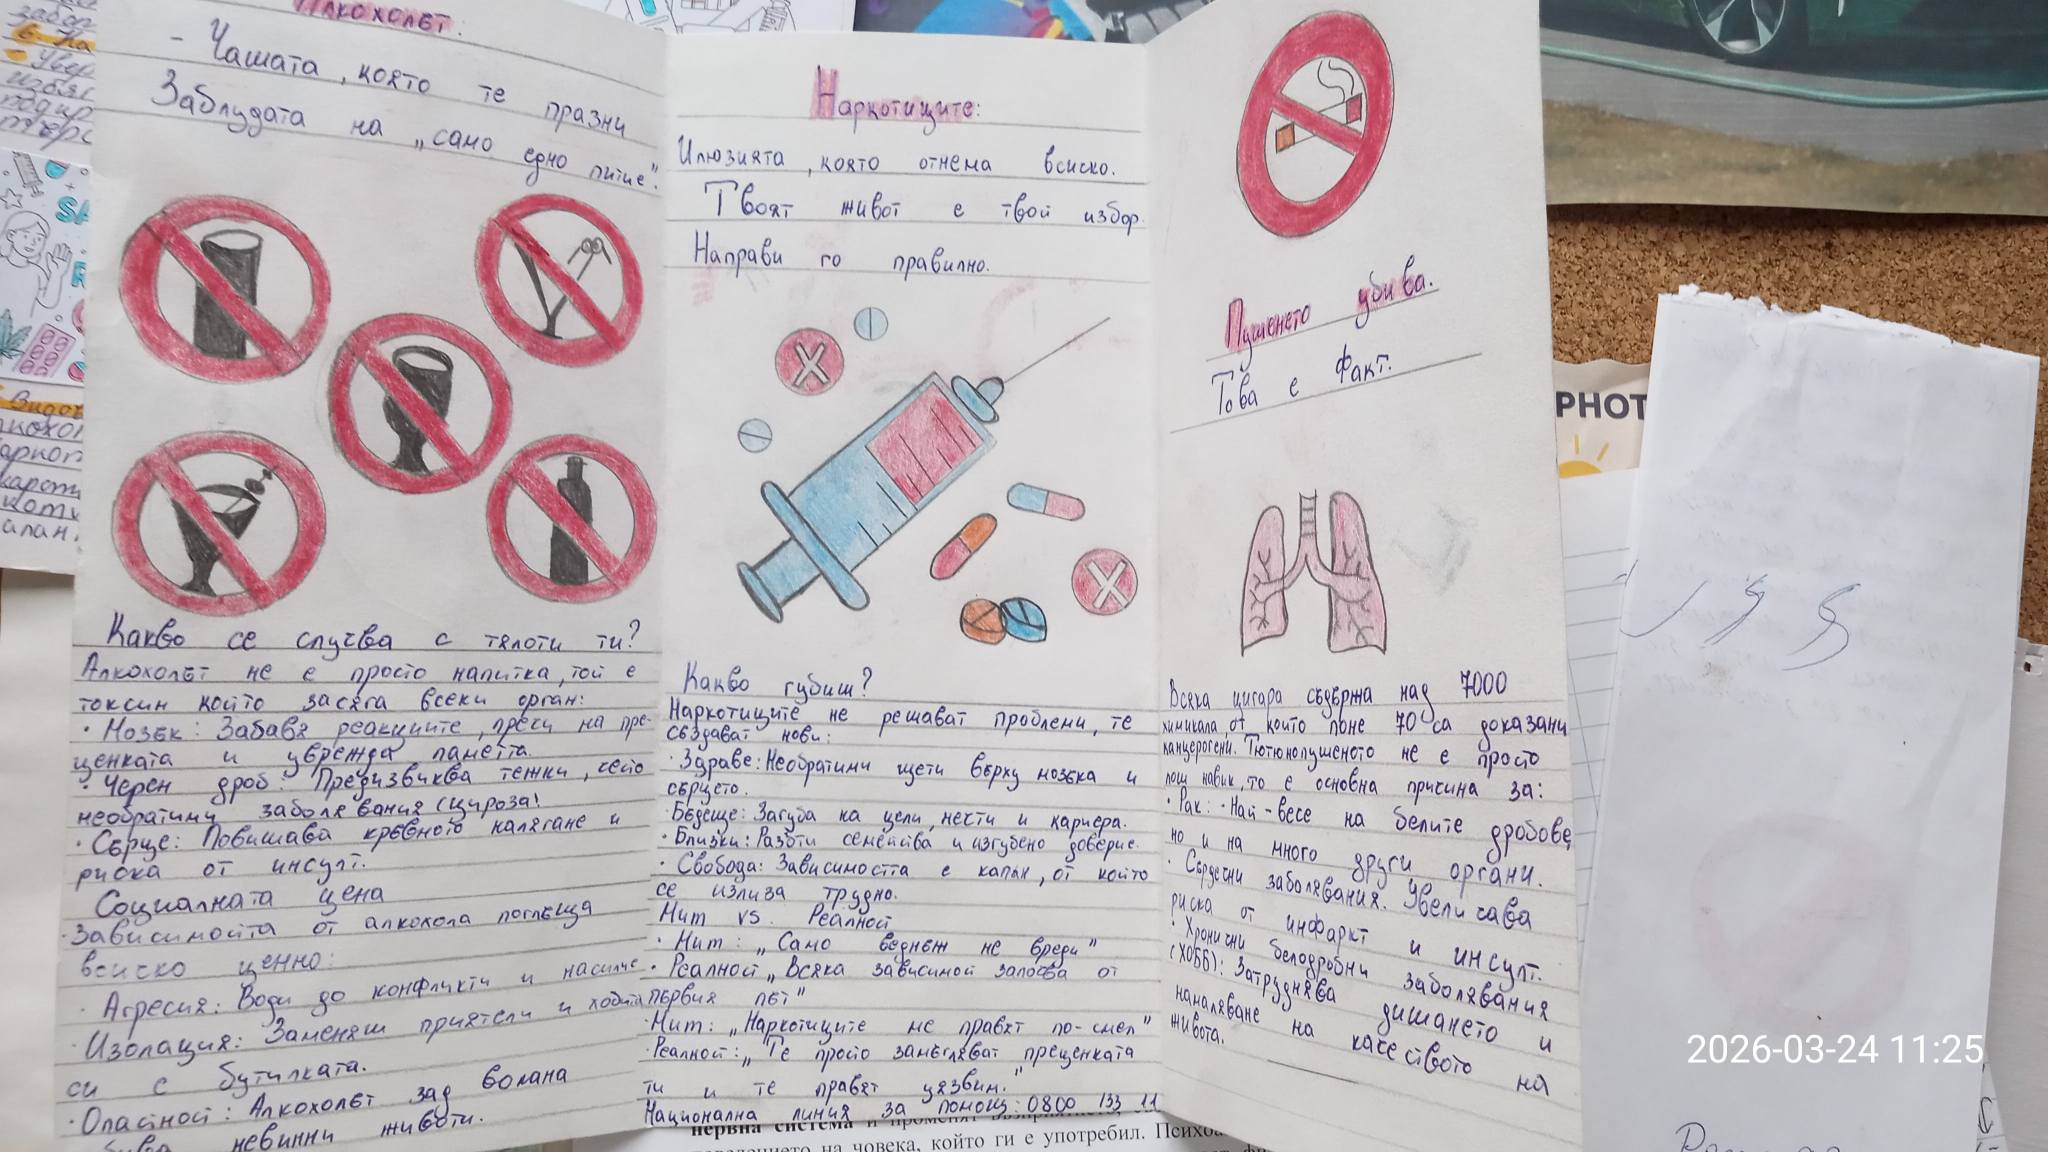 Алкохолът:
- Чашата, която те празни
Заблудата на „само едно питие".
Какво се случва с тялоти ти?
Алкохолът не е просто напитка, той е
токсин който засяга всеки орган:
· Мозък: Забавя реакциите, пречи на пре-
ценката и уврежда паметта.
· Черен дроб: Предизвиква тежки, често
необратими заболявания (цироза!
· Сърце: Повишава кръвното налягане и
риска от инсулт.
Социалната цена
· Зависимостта от алкохола поглъща
всичко ценно:
· Агресия: Води до конфликти и насилие.
· Изолация: Заменяш приятели и хобита
си с бутилката.
· Опасност: Алкохолът зад волана
невинни животи.
Наркотиците:
Илюзията, която отнема всичко.
Твоят живот е твой избор.
Направи го правилно.
Какво губиш?
Наркотиците не решават проблеми, те
създават нови:
· Здраве: Необратими щети върху мозъка и
сърцето.
· Бъдеще: Загуба на цели, мечти и кариера.
· Близки: Разбти семейства и изгубено доверие.
· Свобода: Зависимостта е капан, от който
се излиза трудно.
Мит vs. Реалност
· Мит: „Само веднъж не вреди"
· Реалност „Всяка зависимост започва от
първия път"
· Мит: „Наркотиците ме правят по-смел"
· Реалност: „Те просто замъгляват преценката
ти и те правят уязвим."
Национална линия за помощ: 0800 133 11
Пушенето убива.
Това е факт.
Всяка цигара съдържа над 7000
химикала, от които поне 70 са доказани
канцерогени. Тютюнопушеното не е просто
лош навик, то е основна причина за:
· Рак: · Най-вече на белите дробове,
но и на много други органи.
· Сърдечни заболявания: Увеличава
риска от инфаркт и инсулт.
· Хронични белодробни заболявания
(ХОББ): Затруднява дишането и
намаляване на качеството на
живота.
PHOT
нервна система и променят
на човека, който ги е употребил.
2026-03-24 11:25